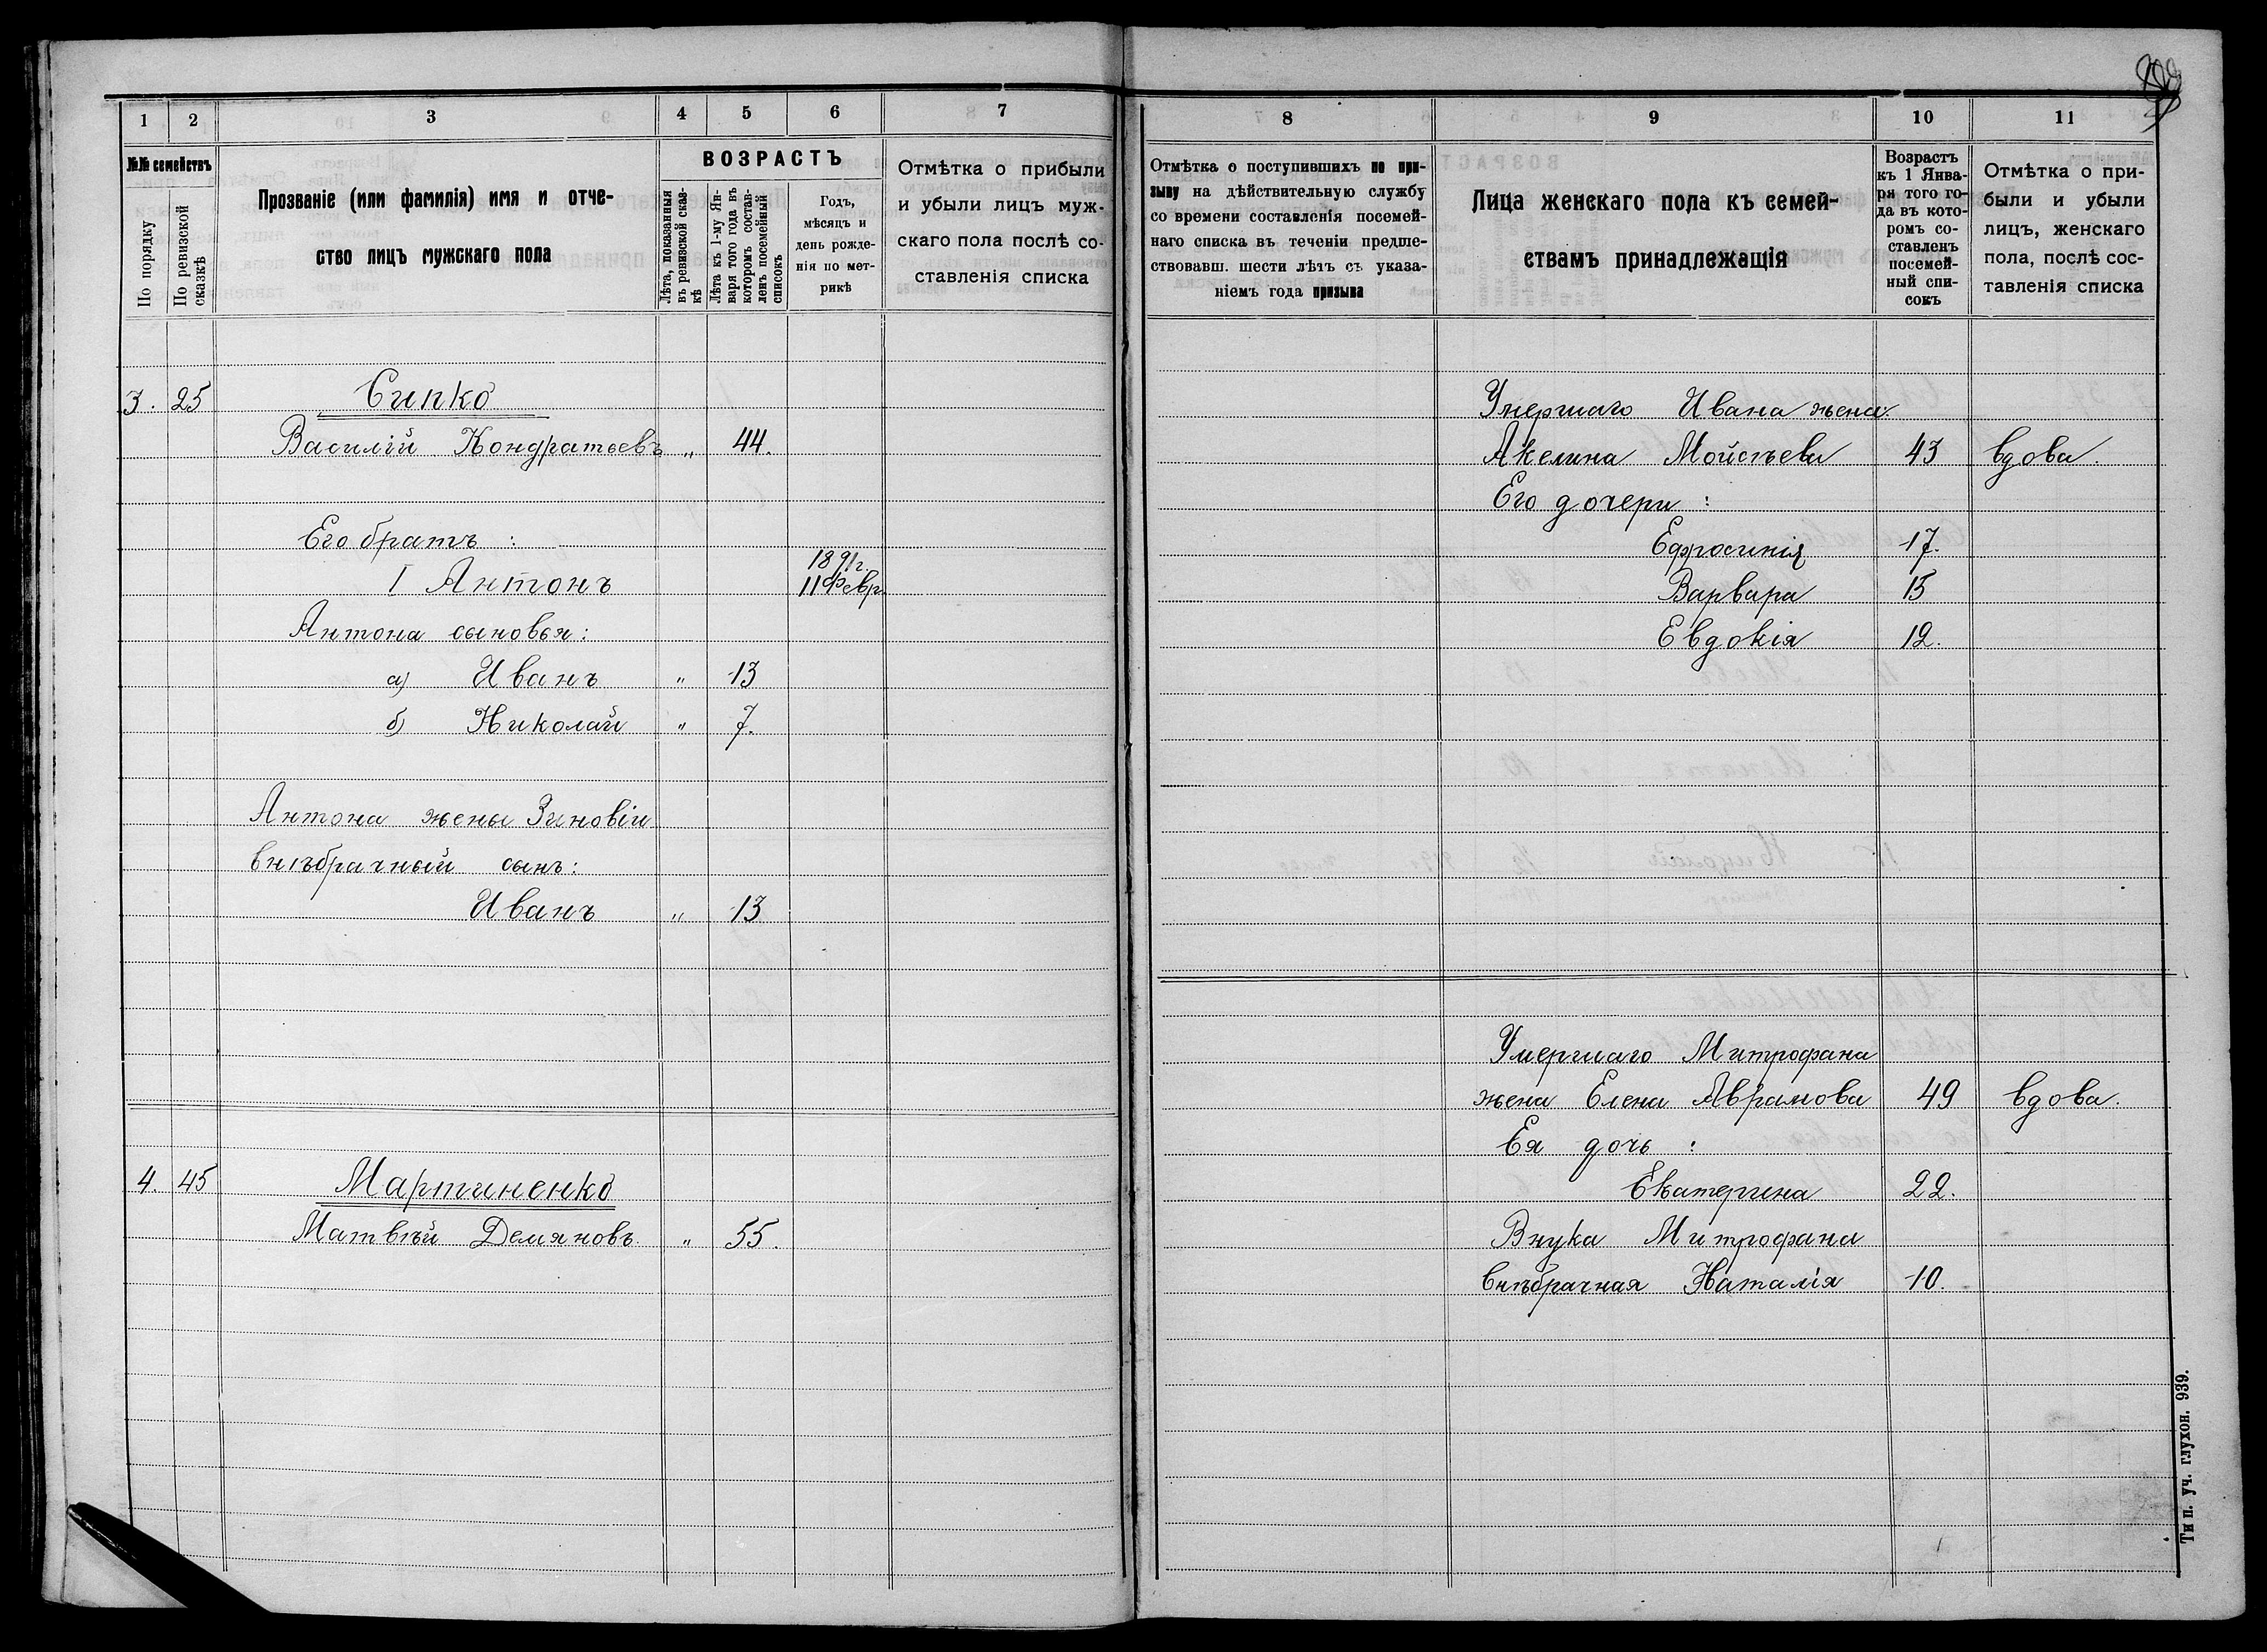 1 2 3 4 5 6 7
№№ семействъ
По порядку
По ревизской сказкѣ
Прозваніе (или фамилія) имя и отче-
ство лицъ мужскаго пола
ВОЗРАСТЪ
Лѣта, показанныя
въ ревизской сказ-
кѣ
Лѣта къ 1-му Ян-
варя того года въ
которомъ состав-
ленъ посемейный
списокъ
Годъ,
мѣсяцъ и
день рожде-
нія по мет-
рикѣ
Отмѣтка о прибыли
и убыли лицъ муж-
скаго пола послѣ со-
ставленія списка
3. 25 Сипко
Василій Кондратьевъ „ 44.
Его братъ :
1891г.
I Антонъ 11 Февр.
Антона сыновья:
а) Иванъ „ 13
б) Николай „ 7.
Антона жены Зиновіи
внѣбрачный сынъ:
Иванъ „ 13
4. 45 Мартиненко
Матвѣй Демяновъ „ 55.
8 9 10 11
Отмѣтка о поступившихъ по при-
зыву на дѣйствительную службу
со времени составленія посемей-
наго списка въ теченіи предше-
ствовавш. шести лѣтъ съ указа-
ніемъ года призыва
Лица женскаго пола къ семей-
ствамъ принадлежащія
Возрастъ
къ 1 Янва-
ря того го-
да въ кото-
ромъ со-
ставленъ
посемей-
ный спи-
сокъ
Отмѣтка о при-
были и убыли
лицъ, женскаго
пола, послѣ сос-
тавленія списка
Умершаго Ивана жена
Акелина Мойсѣева 43 вдова.
Его дочери :
Ефросинія 17.
Варвара 15
Евдокія 12.
Умершаго Митрофана
жена Елена Аврамова 49 вдова.
Ея дочь :
Екатерина 22.
Внука Митрофана
внѣбрачная Наталія 10.
Тип. уч. глухон. 939.